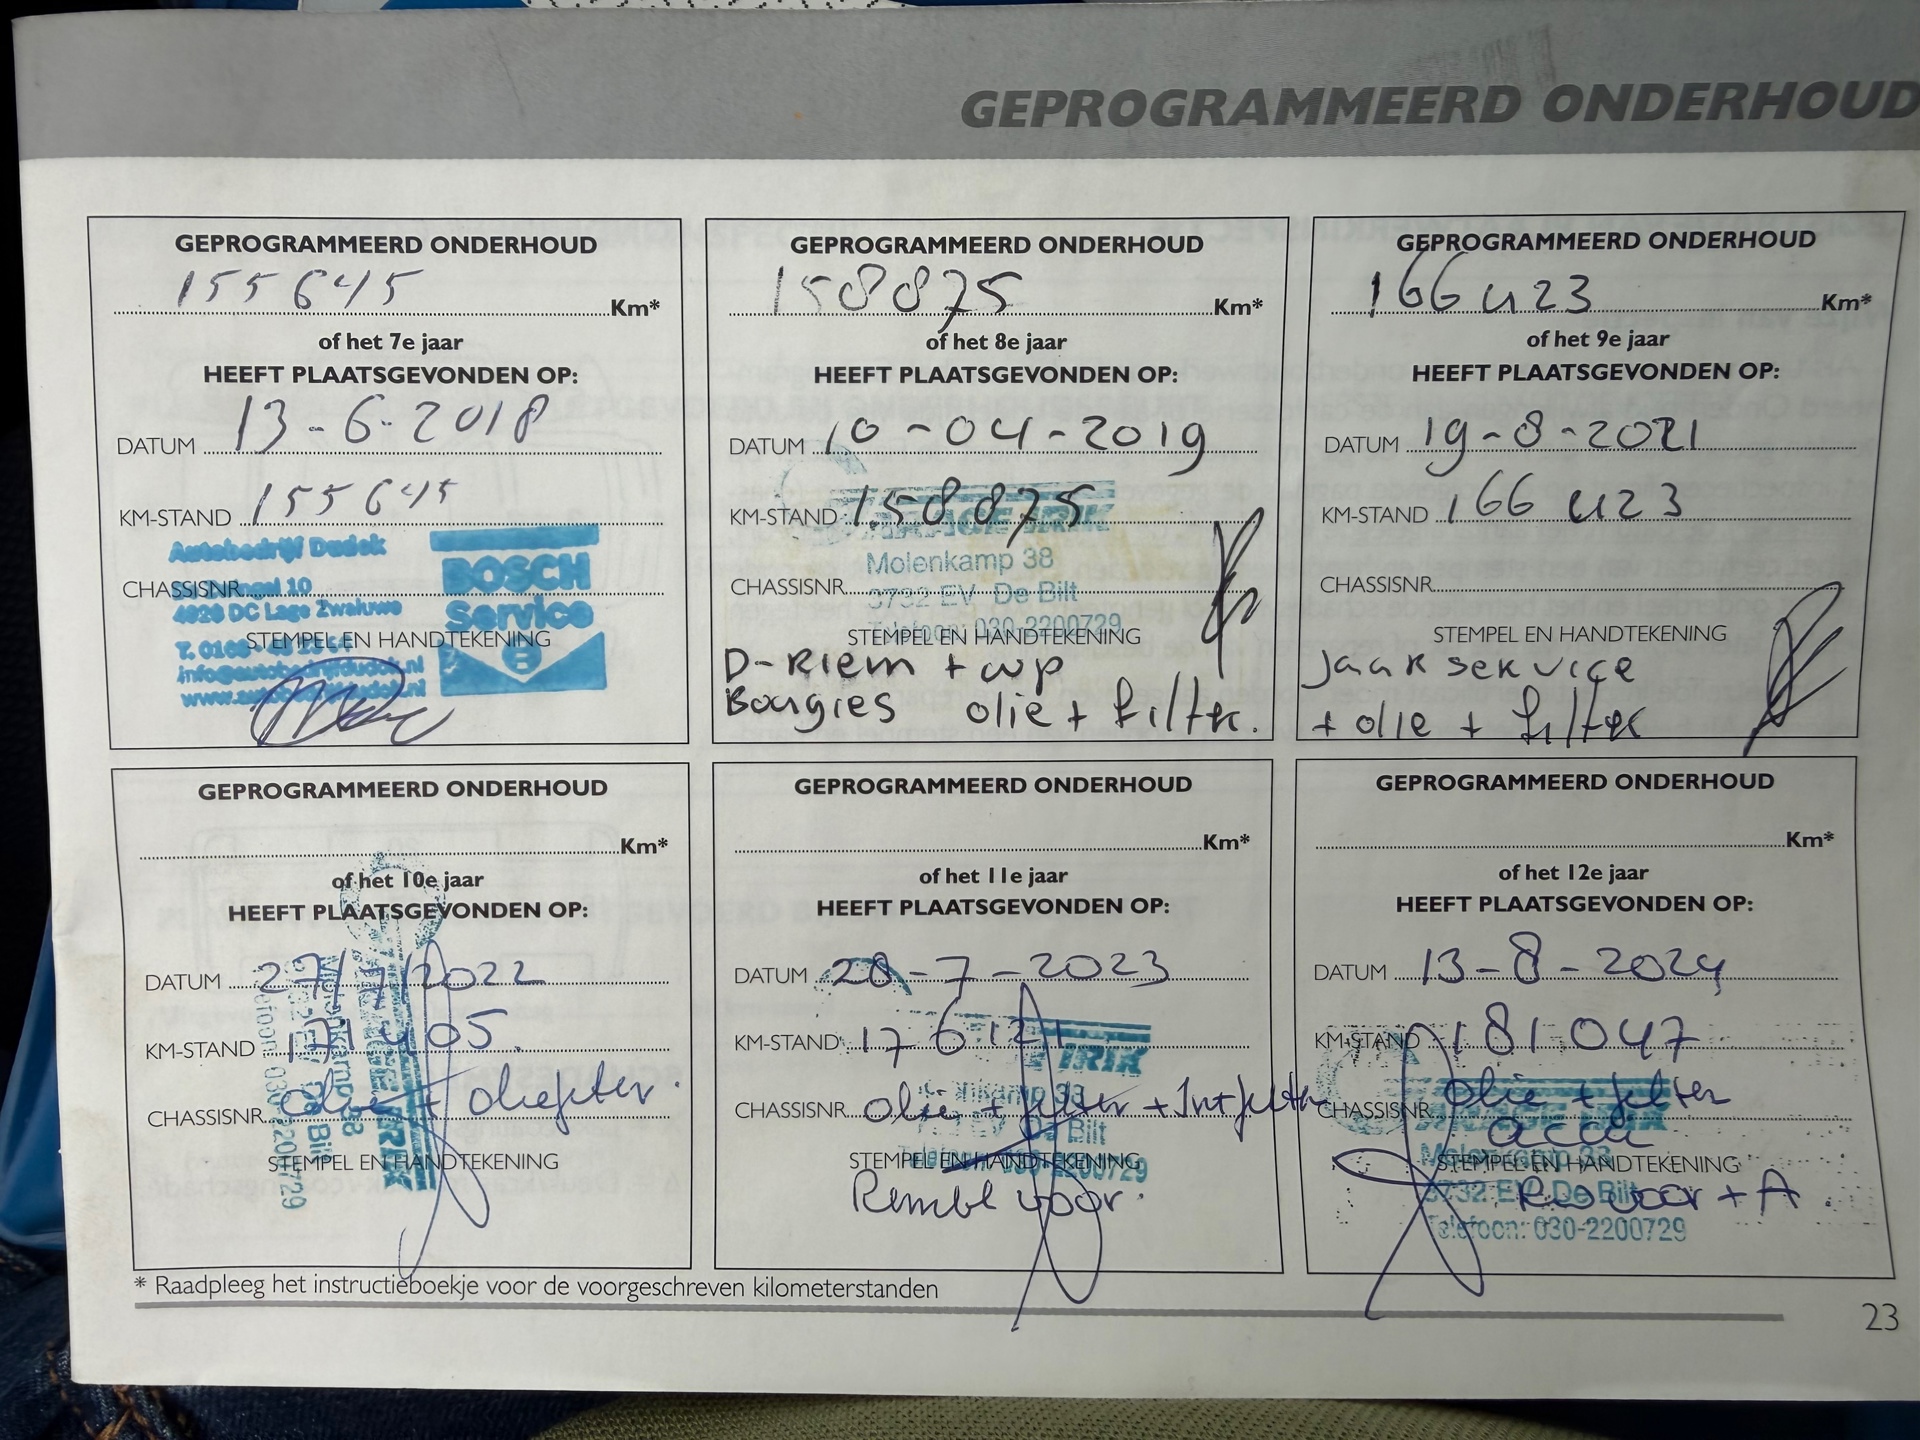 GEPROGRAMMEERD ONDERHOUD
GEPROGRAMMEERD ONDERHOUD
155645 Km*
of het 7e jaar
HEEFT PLAATSGEVONDEN OP:
DATUM 13-6-2018
KM-STAND 155645
Autobedrijf Dudok
BOSCH
Service
CHASSISNR.
10
4926 DC Lage Zwaluwe
STEMPEL EN HANDTEKENING
GEPROGRAMMEERD ONDERHOUD
158875 Km*
of het 8e jaar
HEEFT PLAATSGEVONDEN OP:
DATUM 10-04-2019
KM-STAND 158875
Molenkamp 38
CHASSISNR.
3732 EV De Bilt
Telefoon: 030-2200729
STEMPEL EN HANDTEKENING
D-Riem + wp
Bougies olie + filter.
GEPROGRAMMEERD ONDERHOUD
166423 Km*
of het 9e jaar
HEEFT PLAATSGEVONDEN OP:
DATUM 19-8-2021
KM-STAND 166423
CHASSISNR.
STEMPEL EN HANDTEKENING
Jaarservice
+ olie + filter
GEPROGRAMMEERD ONDERHOUD
Km*
of het 10e jaar
HEEFT PLAATSGEVONDEN OP:
DATUM 27/7/2022
KM-STAND 171405.
CHASSISNR. olie + oliefilter.
STEMPEL EN HANDTEKENING
GEPROGRAMMEERD ONDERHOUD
Km*
of het 11e jaar
HEEFT PLAATSGEVONDEN OP:
DATUM 28-7-2023
KM-STAND 176121
CHASSISNR. olie + filter + Intfilter
De Bilt
STEMPEL EN HANDTEKENING
Remble voor.
GEPROGRAMMEERD ONDERHOUD
Km*
of het 12e jaar
HEEFT PLAATSGEVONDEN OP:
DATUM 13-8-2024
KM-STAND 181047
CHASSISNR. olie + filter
accu
Molenkamp 38
STEMPEL EN HANDTEKENING
3732 EV De Bilt
voor + A
Telefoon: 030-2200729
* Raadpleeg het instructieboekje voor de voorgeschreven kilometerstanden
23